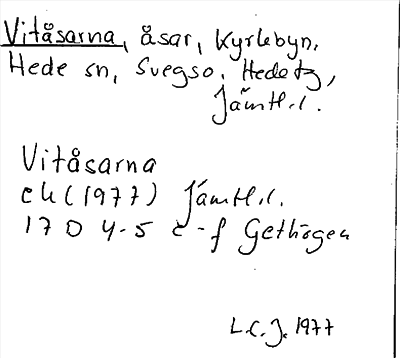 Vitåsarna, åsar, Kyrkbyn,
Hede sn, Svegs o. Hede tg,
Jämtl.l.
Vitåsarna
ek (1977) Jämtl.l.
17 D 4-5 e-f Gethögen
L.C.J. 1977